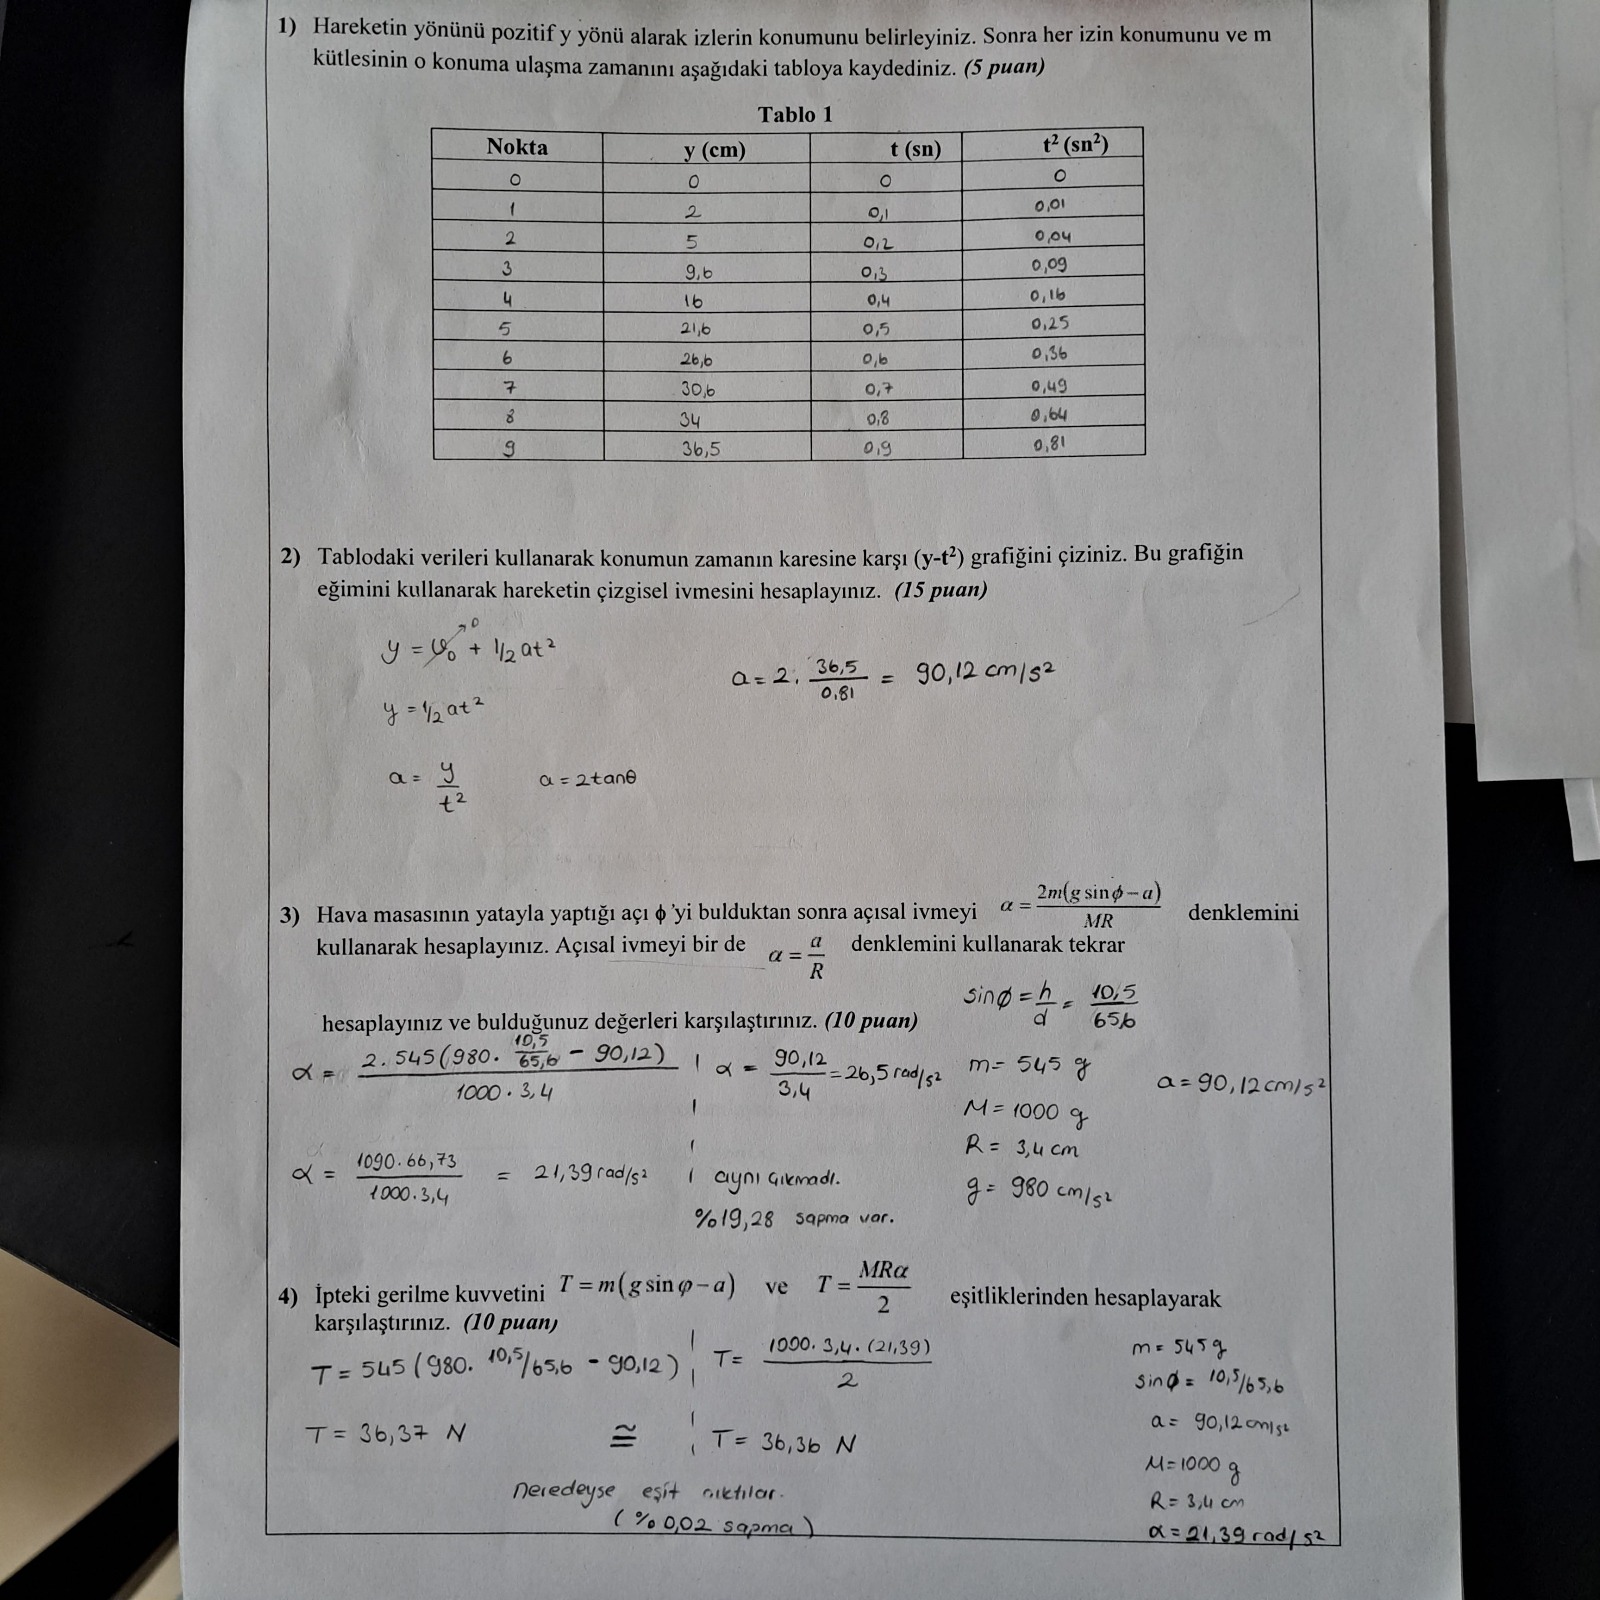 1) Hareketin yönünü pozitif y yönü alarak izlerin konumunu belirleyiniz. Sonra her izin konumunu ve m
kütlesinin o konuma ulaşma zamanını aşağıdaki tabloya kaydediniz. (5 puan)
Tablo 1
Nokta y (cm) t (sn) t² (sn²)
0 0 0 0
1 2 0,1 0,01
2 5 0,2 0,04
3 9,6 0,3 0,09
4 16 0,4 0,16
5 21,6 0,5 0,25
6 26,6 0,6 0,36
7 30,6 0,7 0,49
8 34 0,8 0,64
9 36,5 0,9 0,81
2) Tablodaki verileri kullanarak konumun zamanın karesine karşı (y-t²) grafiğini çiziniz. Bu grafiğin
eğimini kullanarak hareketin çizgisel ivmesini hesaplayınız. (15 puan)
y = v₀→0 + 1/2 at²
a = 2. 36,5/0,81 = 90,12 cm/s²
y = 1/2 at²
a = y/t² a = 2tanθ
3) Hava masasının yatayla yaptığı açı ϕ'yi bulduktan sonra açısal ivmeyi α = 2m(g sin ϕ − a)/MR denklemini
kullanarak hesaplayınız. Açısal ivmeyi bir de α = a/R denklemini kullanarak tekrar
sinϕ = h/d = 10,5/65,6
hesaplayınız ve bulduğunuz değerleri karşılaştırınız. (10 puan)
α = 2.545(980. 10,5/65,6 - 90,12)/1000.3,4 α = 90,12/3,4 = 26,5 rad/s² m = 545 g a = 90,12 cm/s²
M = 1000 g
R = 3,4 cm
α = 1090.66,73/1000.3,4 = 21,39 rad/s² aynı çıkmadı. g = 980 cm/s²
%19,28 sapma var.
4) İpteki gerilme kuvvetini T = m(g sin φ − a) ve T = MRα/2 eşitliklerinden hesaplayarak
karşılaştırınız. (10 puan)
T = 545 (980. 10,5/65,6 - 90,12) T = 1000.3,4.(21,39)/2 m = 545 g
sinϕ = 10,5/65,6
T = 36,37 N ≅ T = 36,36 N a = 90,12 cm/s²
M = 1000 g
neredeyse eşit çıktılar. R = 3,4 cm
(%0,02 sapma) α = 21,39 rad/s²